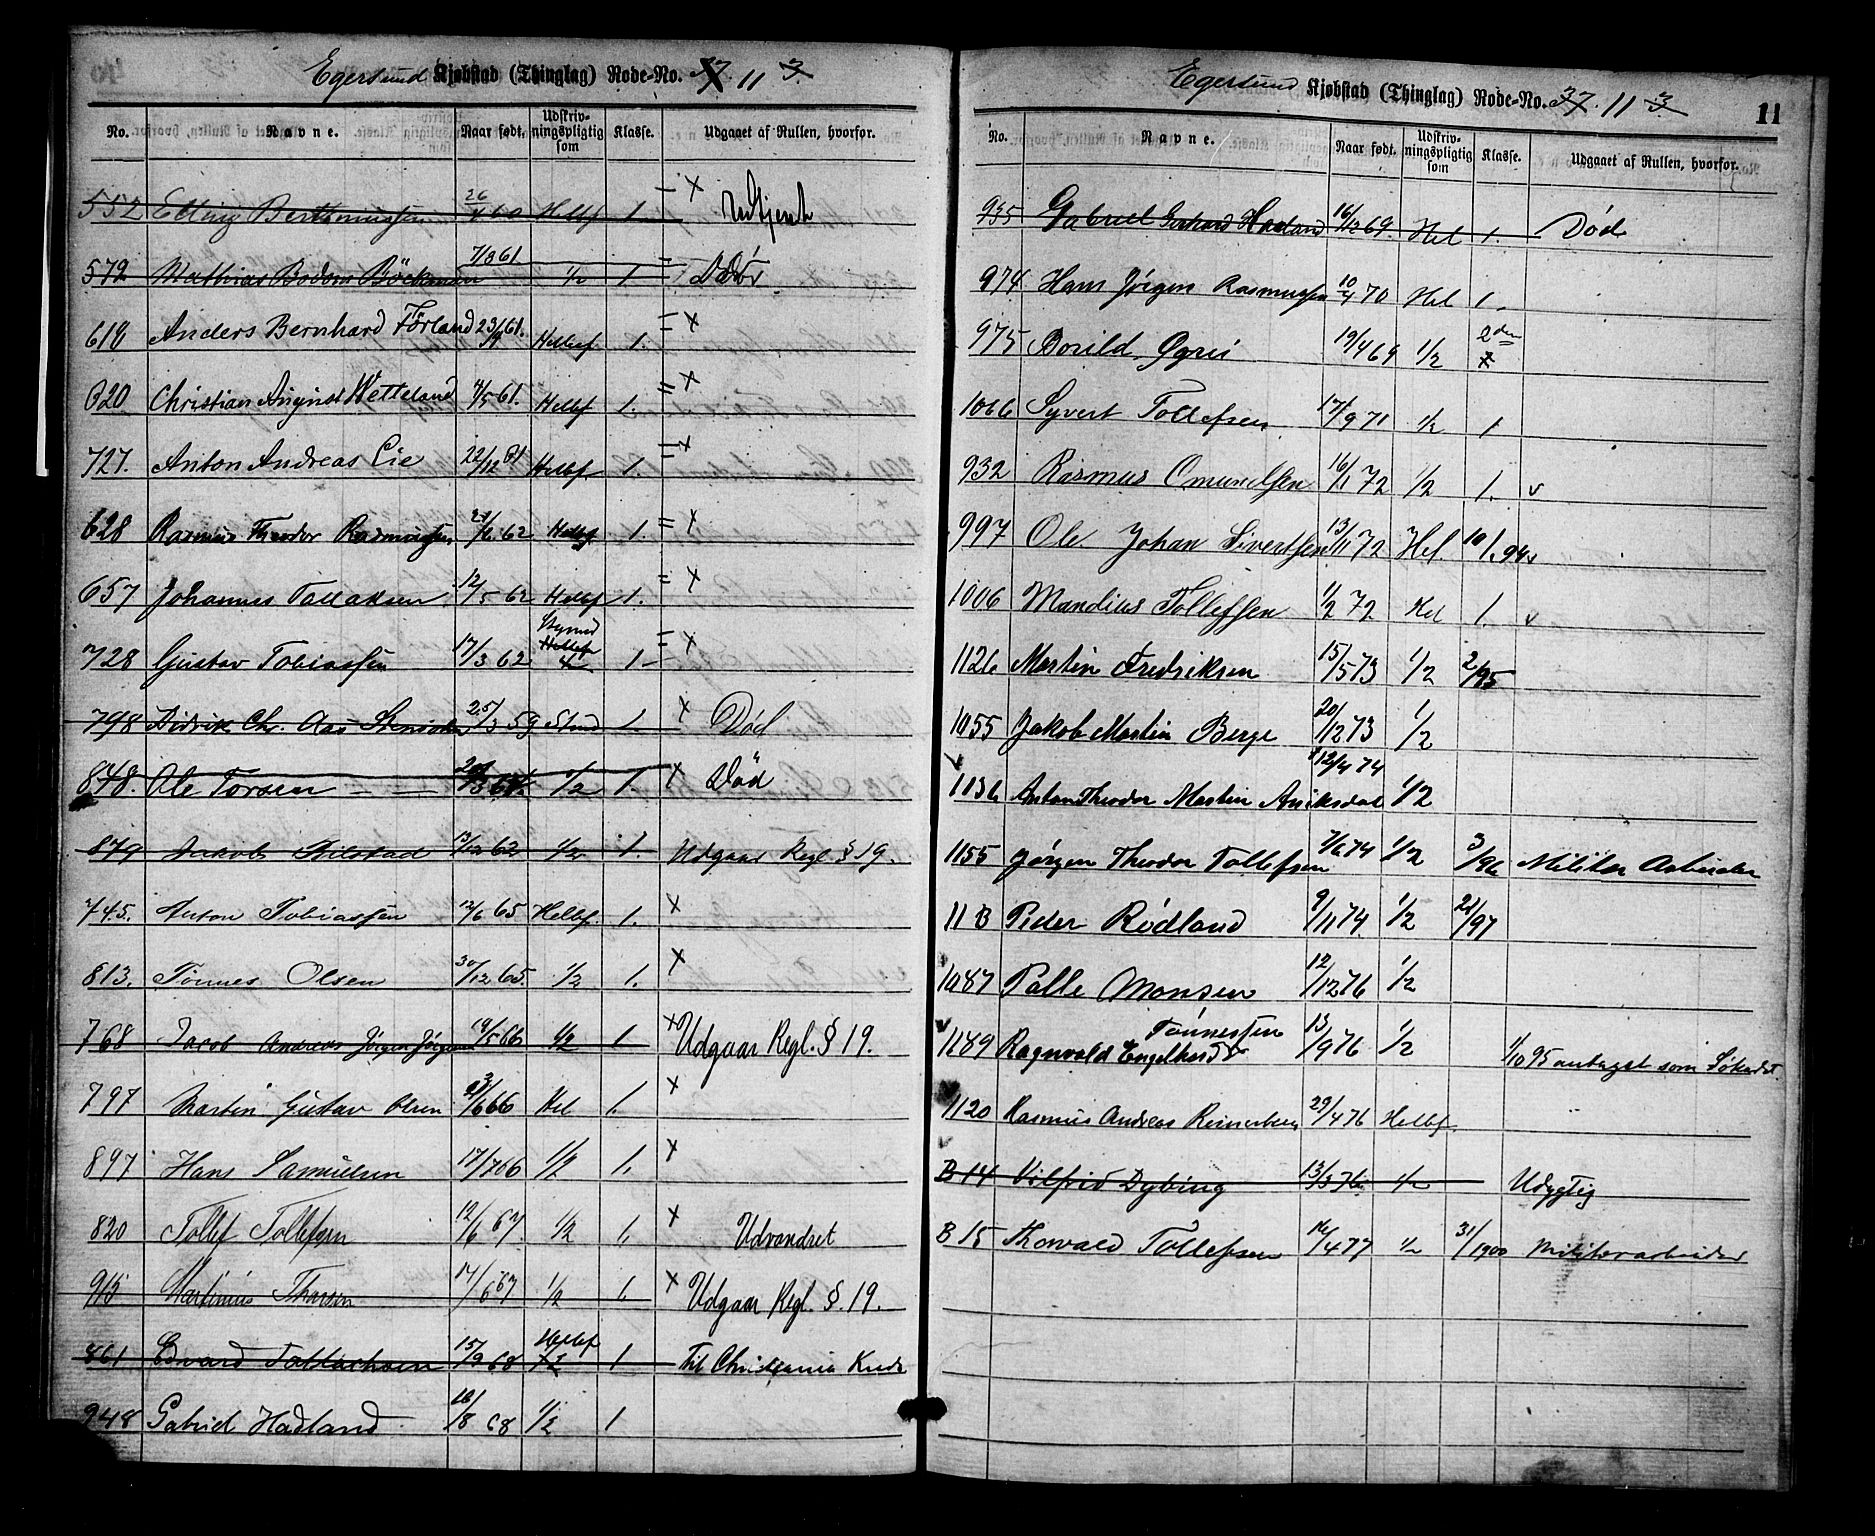 Egersund Kjøbstad (Thinglag) Rode-No. 37. 11 3.
No. Navne. Naar født. Udskrivningspligtig som Klasse. Udgaaet af Rullen, hvorfor.
552 Elling Berthinussen 26/4 60 Helbf. 1. = x Udtjent
572 Mathias Bodom Böckman 7/3 61 1/2 1 =
618 Anders Bernhard Förland 23/9 61. Helbf. 1. = x
620 Christian August Wetteland 4/5 61. Helbf 1. = x
727. Anton Andreas Lie 22/12 61 Helbf. 1. = x
628 Rasmus Theodor Rasmussen 21/6 62 Helbf 1. = x
657 Johannes Tollaksen 12/5 62 Helbf 1. = x
728 Gustav Tobiassen 17/3 62 Helbf 1 = x
798 Didrik Chr. Aas 25/3 59 Stud 1. x Død
848. Ole Torsen 1/2 1. x Død
879 Jakob Kilstad 13/12 62 1/2 1. Udgaar Regl § 19.
745. Anton Tobiassen 12/6 65 Helbf. 1. x
813. Tönnes Olsen 30/12 65. 1/2 1. x
768 Jacob Andreas Jörgen 19/5 66 1/2 1. x Udgaar Regl. § 19.
797 Martin Gustav Olsen 23/6 66 Hel 1. x
897 Hans Samuelsen 17/7 66 1/2 1. x
820 Tollef Tollefsen 12/6 67. 1/2 1. x Udvandret
915 Martinius Thorsen 17/6 67 1/2 1. x Udgaar Regl. §. 19.
861 Edvard Tollachsen 15/9 68 Helbf 1/2 1 Til Christiania Kreds
948 Gabriel Hadland 16/8 68 1/2 1
Egersund Kjøbstad (Thinglag) Rode-No. 37. 11 3. 11
No. Navne. Naar født. Udskrivningspligtig som Klasse. Udgaaet af Rullen, hvorfor.
935 Gabriel Gerhard Hadland 16/12 69. Hel 1. Død
974 Hans Jörgen Rasmussen 10/4 70 Hel 1.
975 Borild Øgrei 19/4 69 1/2 2den
1066 Syvert Tollefsen 17/9 71 1/2 1
932 Rasmus Omundsen 16/1 72 1/2 1. v
997 Ole Johan Sivertsen 13/11 72 Hel. 10/1.94 v
1006 Mandius Tollefsen 1/2 72 Hel 1. v
1126 Martin Fredriksen 15/5 73 1/2 2/95
1055 Jakob Martin Berge 20/12 73 1/2
1136 Anton Theodor Martin Aniksdal 12/4 74 1/2
1155 Jørgen Theodor Tollefsen 7/6 74 1/2 3/96 Militær Arbeider
11 B Peder Rödland 9/11 74 1/2 21/97
1087 Palle Monsen 12/12 76 1/2
1189 Ragnvald Engelhard Tönnessen 13/9 76 1/2 1/10 95 antaget som
1120 Rasmus Andreas Reinertsen 29/4 76 Helbf.
B 14 Vilfrid Dybing 13/3 76 1/2 Udygtig
B 15 Thorvald Tollefsen 16/4 77 1/2 31/1900 Militærarbeider